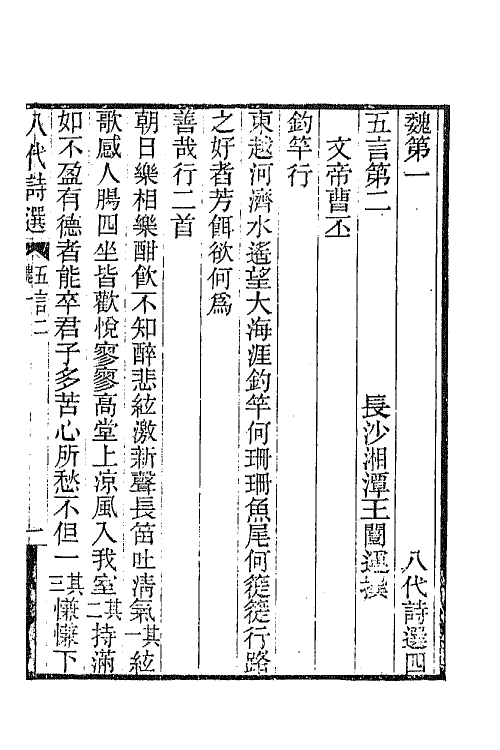 魏第一　八代詩選四
五言第二　長沙湘潭王闓運撰
文帝曹丕
釣竿行
東越河濟水遙望大海涯釣竿何珊珊魚尾何簁簁行路
之好者芳餌欲何爲
善哉行二首
朝日樂相樂酣飲不知醉悲絃激新聲長笛吐淸氣其一絃
歌感人腸四坐皆歡悅寥寥高堂上涼風入我室其二持滿
如不盈有德者能卒君子多苦心所愁不但一其三慊慊下
八代詩選　五言二　魏一　一